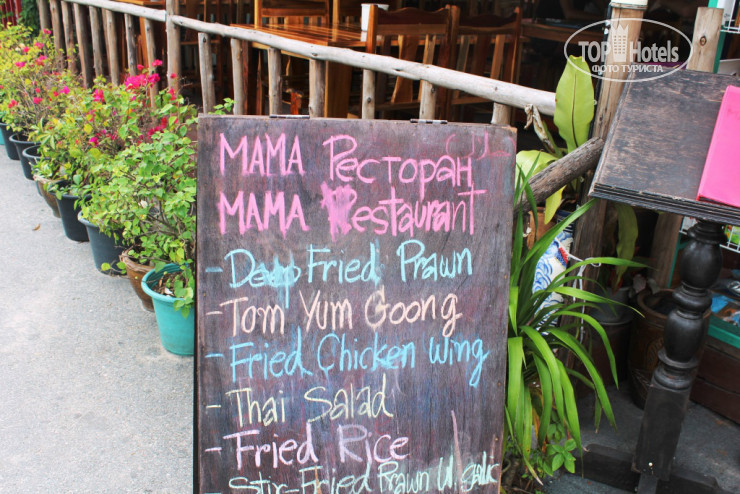 TOPHotels
ФОТО ТУРИСТА
MAMA Ресторан
MAMA Restaurant
- Deep Fried Prawn
- Tom Yum Goong
- Fried Chicken Wing
- Thai Salad
- Fried Rice
- Stir-Fried Prawn W. Garlic